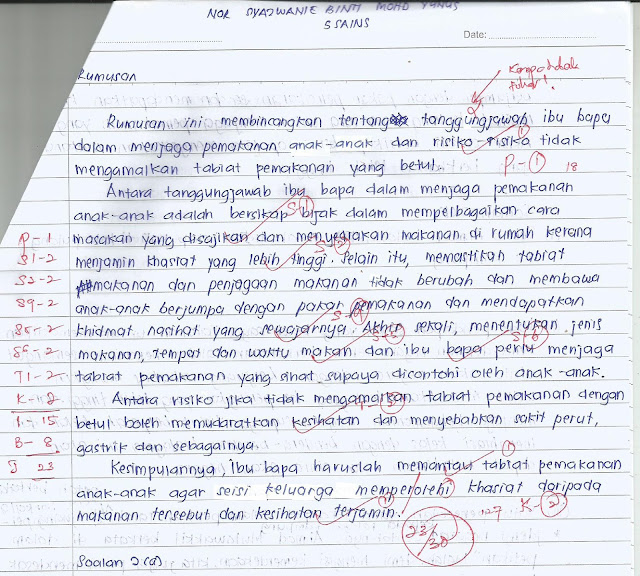 NOR SYAZWANIE BINTI MOHD YUNUS
5 SAINS
Date:
Rumusan
Rumusan ini membincangkan tentang tanggungjawab ibu bapa
dalam menjaga pemakanan anak-anak dan risiko-risiko tidak
mengamalkan tabiat pemakanan yang betul.
P-1 18
Antara tanggungjawab ibu bapa dalam menjaga pemakanan
anak-anak adalah bersikap bijak dalam mempelbagaikan cara
masakan yang disajikan dan menyediakan makanan di rumah kerana
menjamin khasiat yang lebih tinggi. Selain itu, memastikan tabiat
pemakanan dan penjagaan makanan tidak berubah dan membawa
anak-anak berjumpa dengan pakar pemakanan dan mendapatkan
khidmat nasihat yang sewajarnya. Akhir sekali, menentukan jenis
makanan, tempat dan waktu makan dan ibu bapa perlu menjaga
tabiat pemakanan yang sihat supaya dicontohi oleh anak-anak.
Antara risiko jika tidak mengamalkan tabiat pemakanan dengan
betul boleh memudaratkan kesihatan dan menyebabkan sakit perut,
gastrik dan sebagainya.
Kesimpulannya ibu bapa haruslah memantau tabiat pemakanan
anak-anak agar seisi keluarga memperolehi khasiat daripada
makanan tersebut dan kesihatan terjamin.
127 K-2
23/30
P-1
S1-2
S3-2
S9-2
S5-2
S6-2
T1-2
K-2
I-15
B-8
J 23
Soalan 2(a)